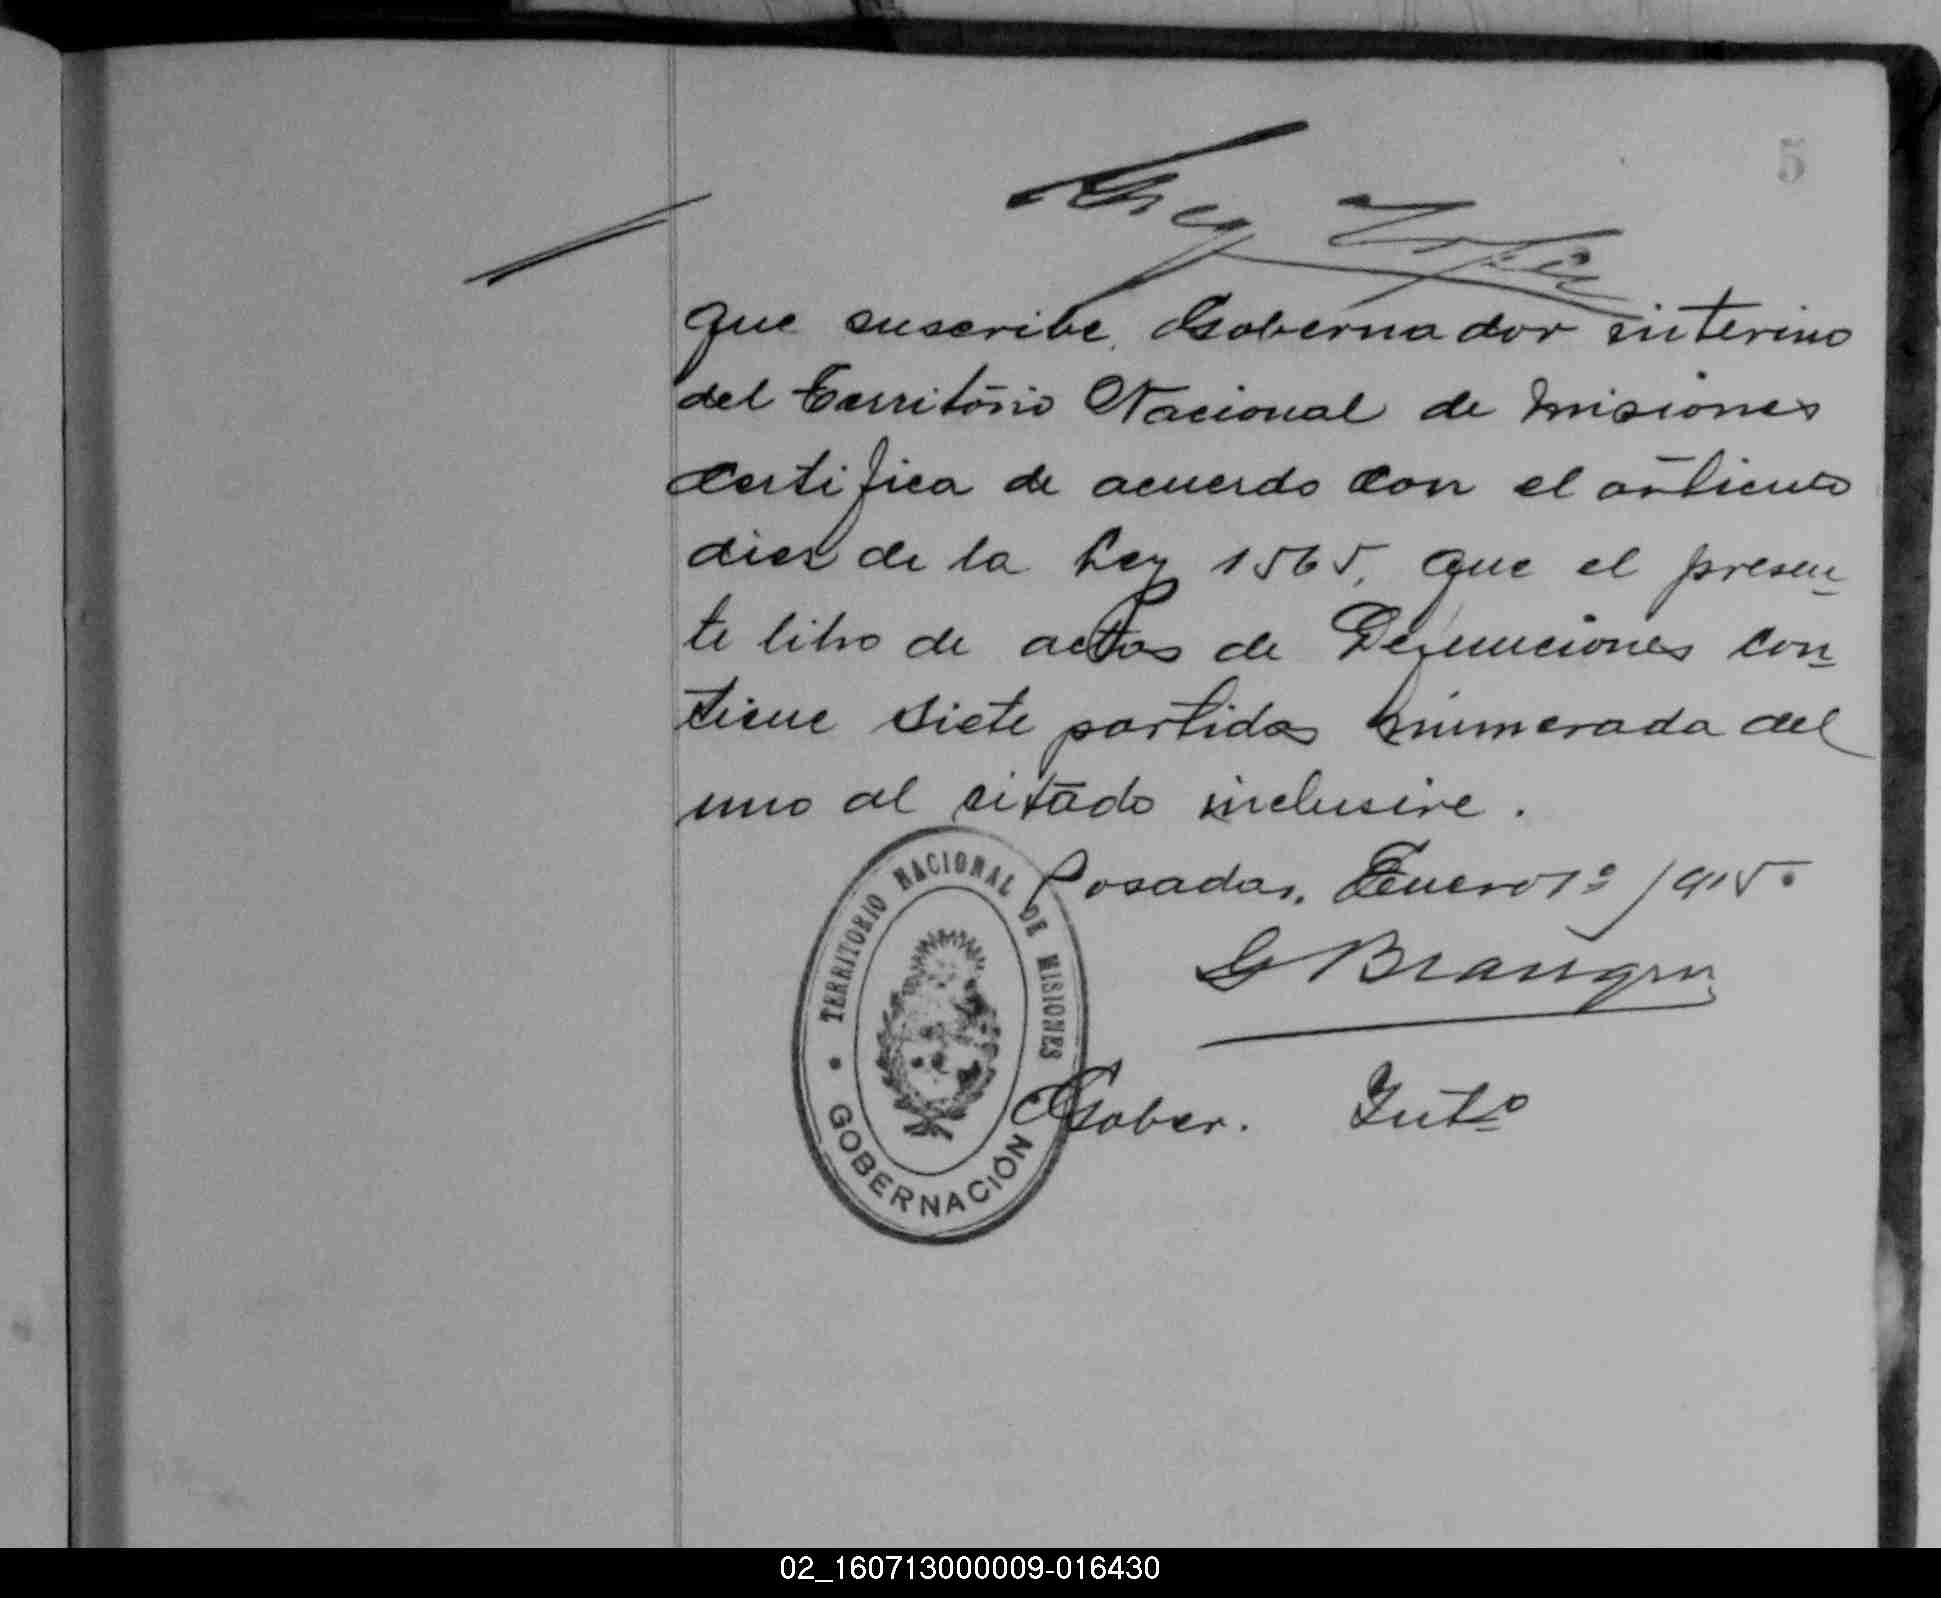 5
Greg
que suscribe, Gobernador interino
del Territorio Nacional de Misiones
certifica de acuerdo con el articulo
diez de la Ley 1565, que el presen-
te libro de actas de Defunciones con-
tiene siete partidas numerada del
uno al citado inclusive.
Posadas, Enero 1º/915.
Gober. Intº
TERRITORIO NACIONAL DE MISIONES
GOBERNACIÓN
02_160713000009-016430